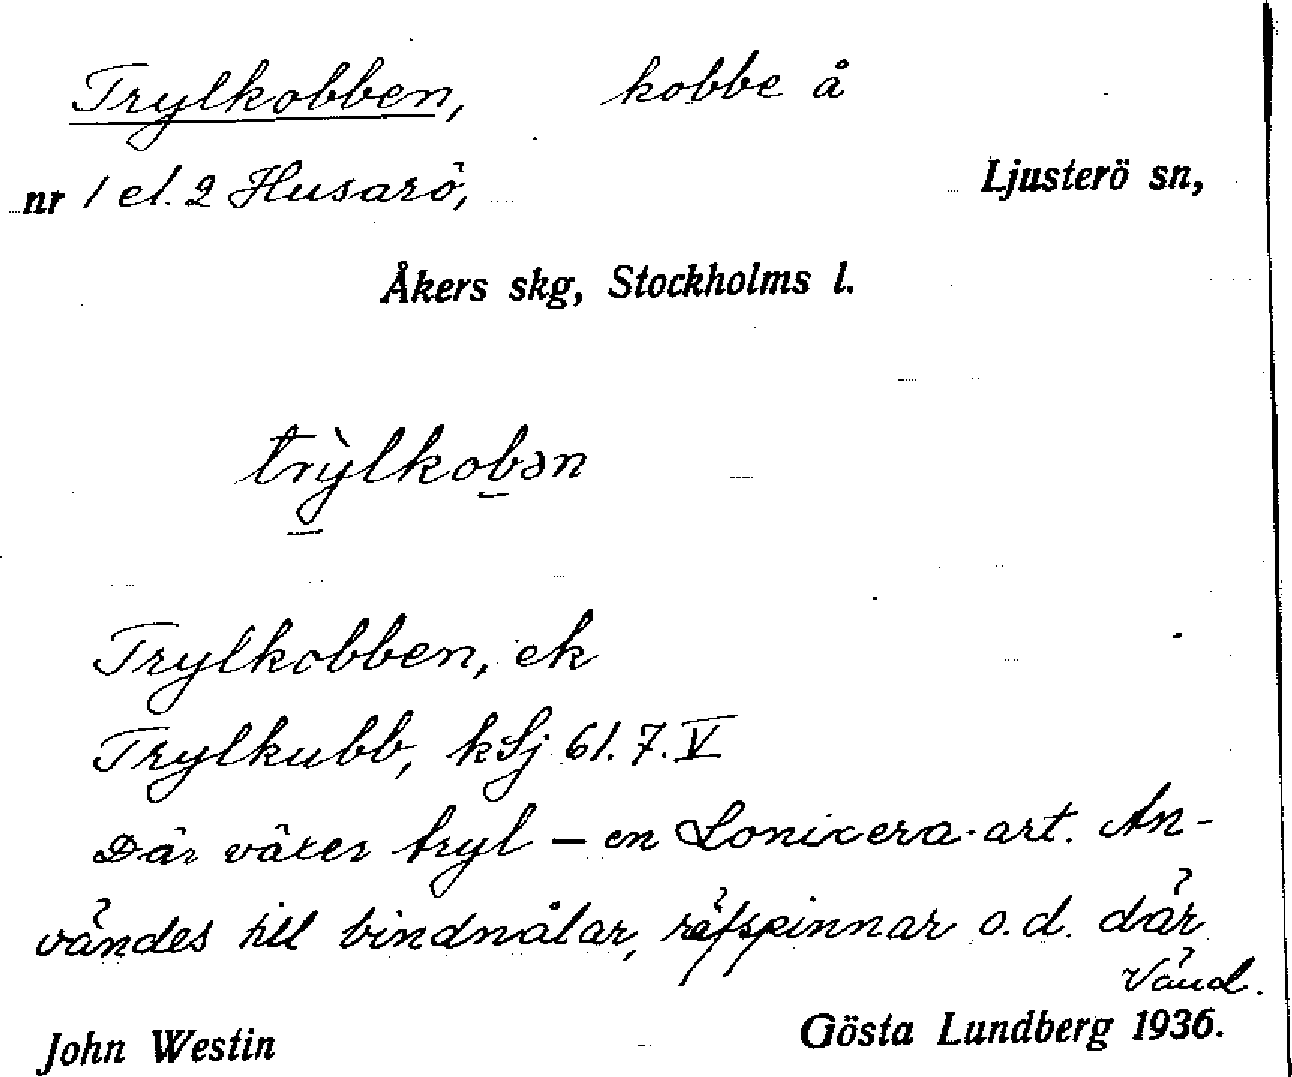 Trylkobben, kobbe å
nr 1 el. 2 Husarö, Ljusterö sn,
Åkers skg, Stockholms l.
trỳlkobən
Trylkobben, ek
Trylkubb, kSj 61. 7. V
Där växer tryl – en Lonicera-art. An-
vändes till bindnålar, räfspinnar o.d. där
Vänd.
John Westin Gösta Lundberg 1936.